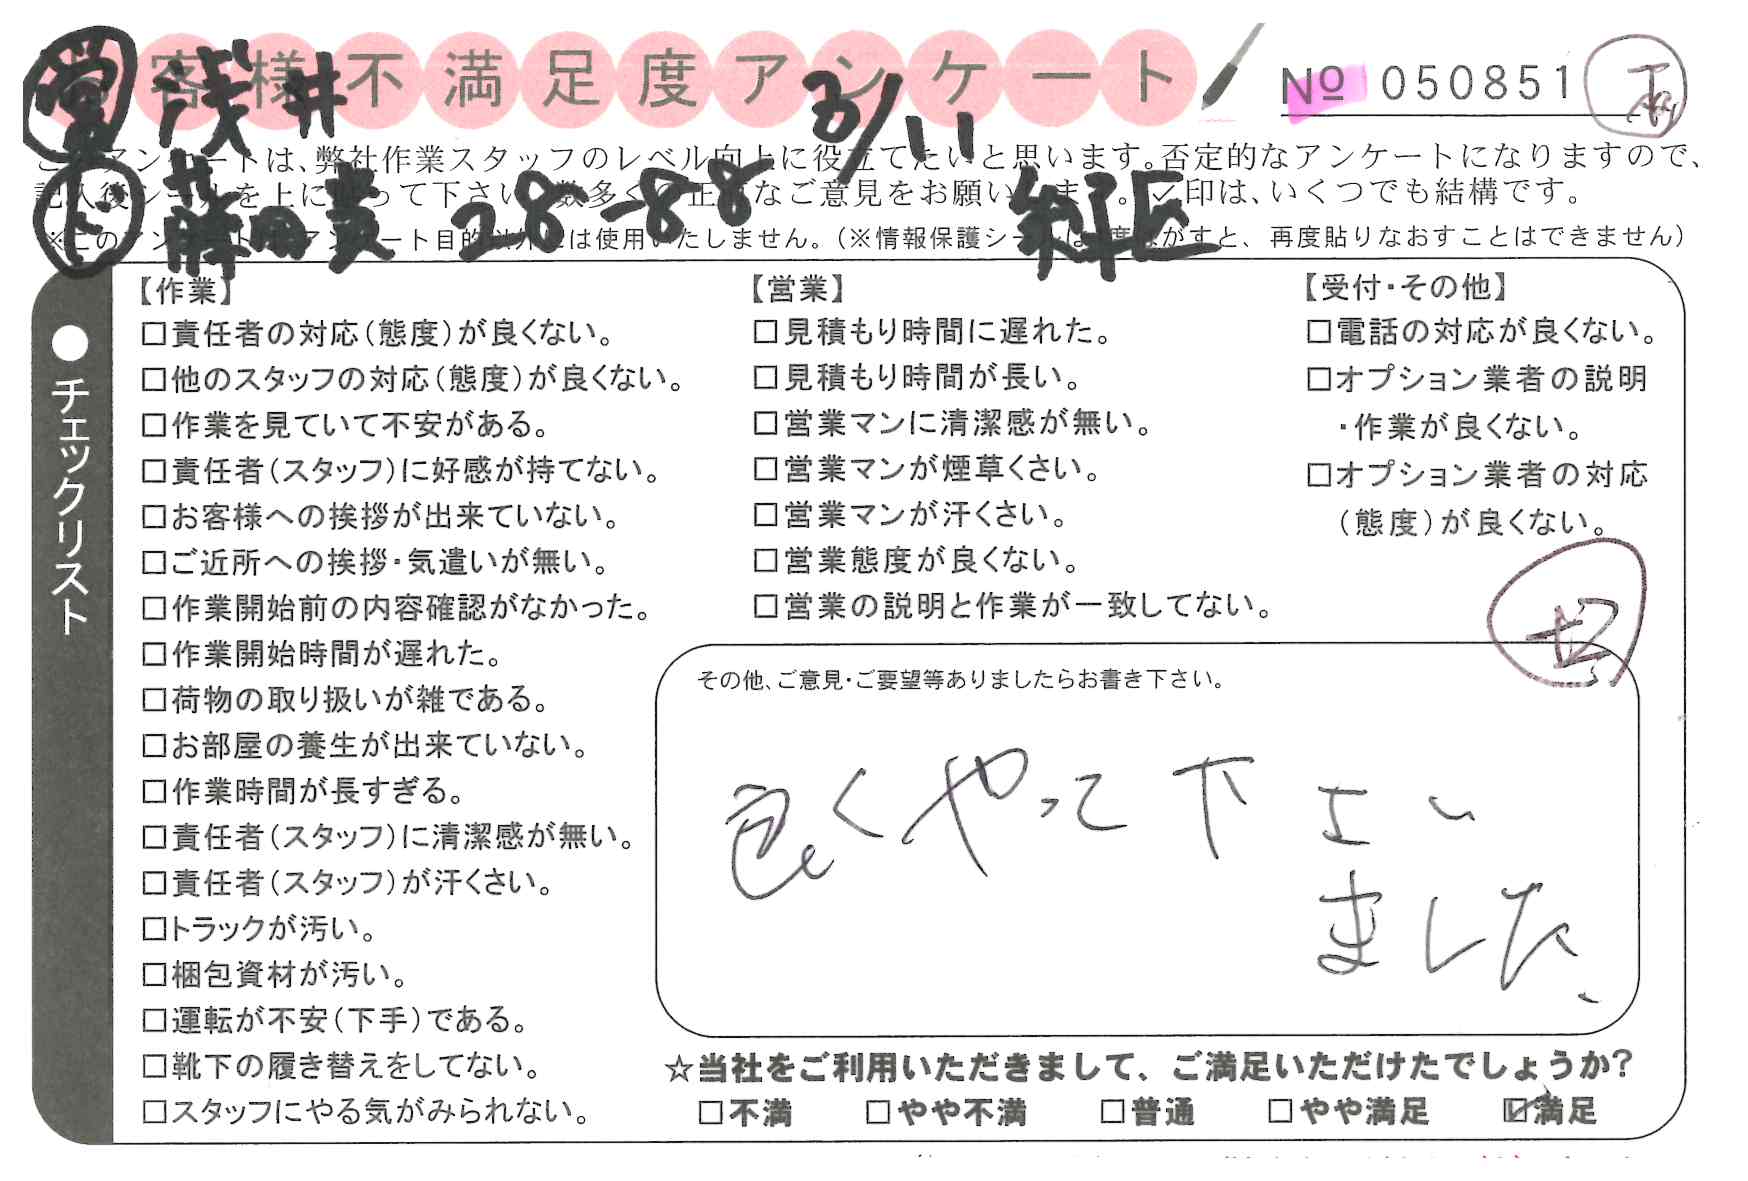 客様不満足度アンケート No 050851
営 浅井 3/11
このアンケートは、弊社作業スタッフのレベル向上に役立てたいと思います。否定的なアンケートになりますので、
記入後シールを上に貼って下さい。数多くの正直なご意見をお願いします。✓印は、いくつでも結構です。
藤田貴 28-88 緑区
※このアンケートはアンケート目的以外には使用いたしません。(※情報保護シールは1度はがすと、再度貼りなおすことはできません)
●チェックリスト
【作業】
□責任者の対応(態度)が良くない。
□他のスタッフの対応(態度)が良くない。
□作業を見ていて不安がある。
□責任者(スタッフ)に好感が持てない。
□お客様への挨拶が出来ていない。
□ご近所への挨拶・気遣いが無い。
□作業開始前の内容確認がなかった。
□作業開始時間が遅れた。
□荷物の取り扱いが雑である。
□お部屋の養生が出来ていない。
□作業時間が長すぎる。
□責任者(スタッフ)に清潔感が無い。
□責任者(スタッフ)が汗くさい。
□トラックが汚い。
□梱包資材が汚い。
□運転が不安(下手)である。
□靴下の履き替えをしてない。
□スタッフにやる気がみられない。
【営業】
□見積もり時間に遅れた。
□見積もり時間が長い。
□営業マンに清潔感が無い。
□営業マンが煙草くさい。
□営業マンが汗くさい。
□営業態度が良くない。
□営業の説明と作業が一致してない。
【受付・その他】
□電話の対応が良くない。
□オプション業者の説明
・作業が良くない。
□オプション業者の対応
(態度)が良くない。
その他、ご意見・ご要望等ありましたらお書き下さい。
良くやって下さい
ました、
☆当社をご利用いただきまして、ご満足いただけたでしょうか?
□不満 □やや不満 □普通 □やや満足 ☑満足